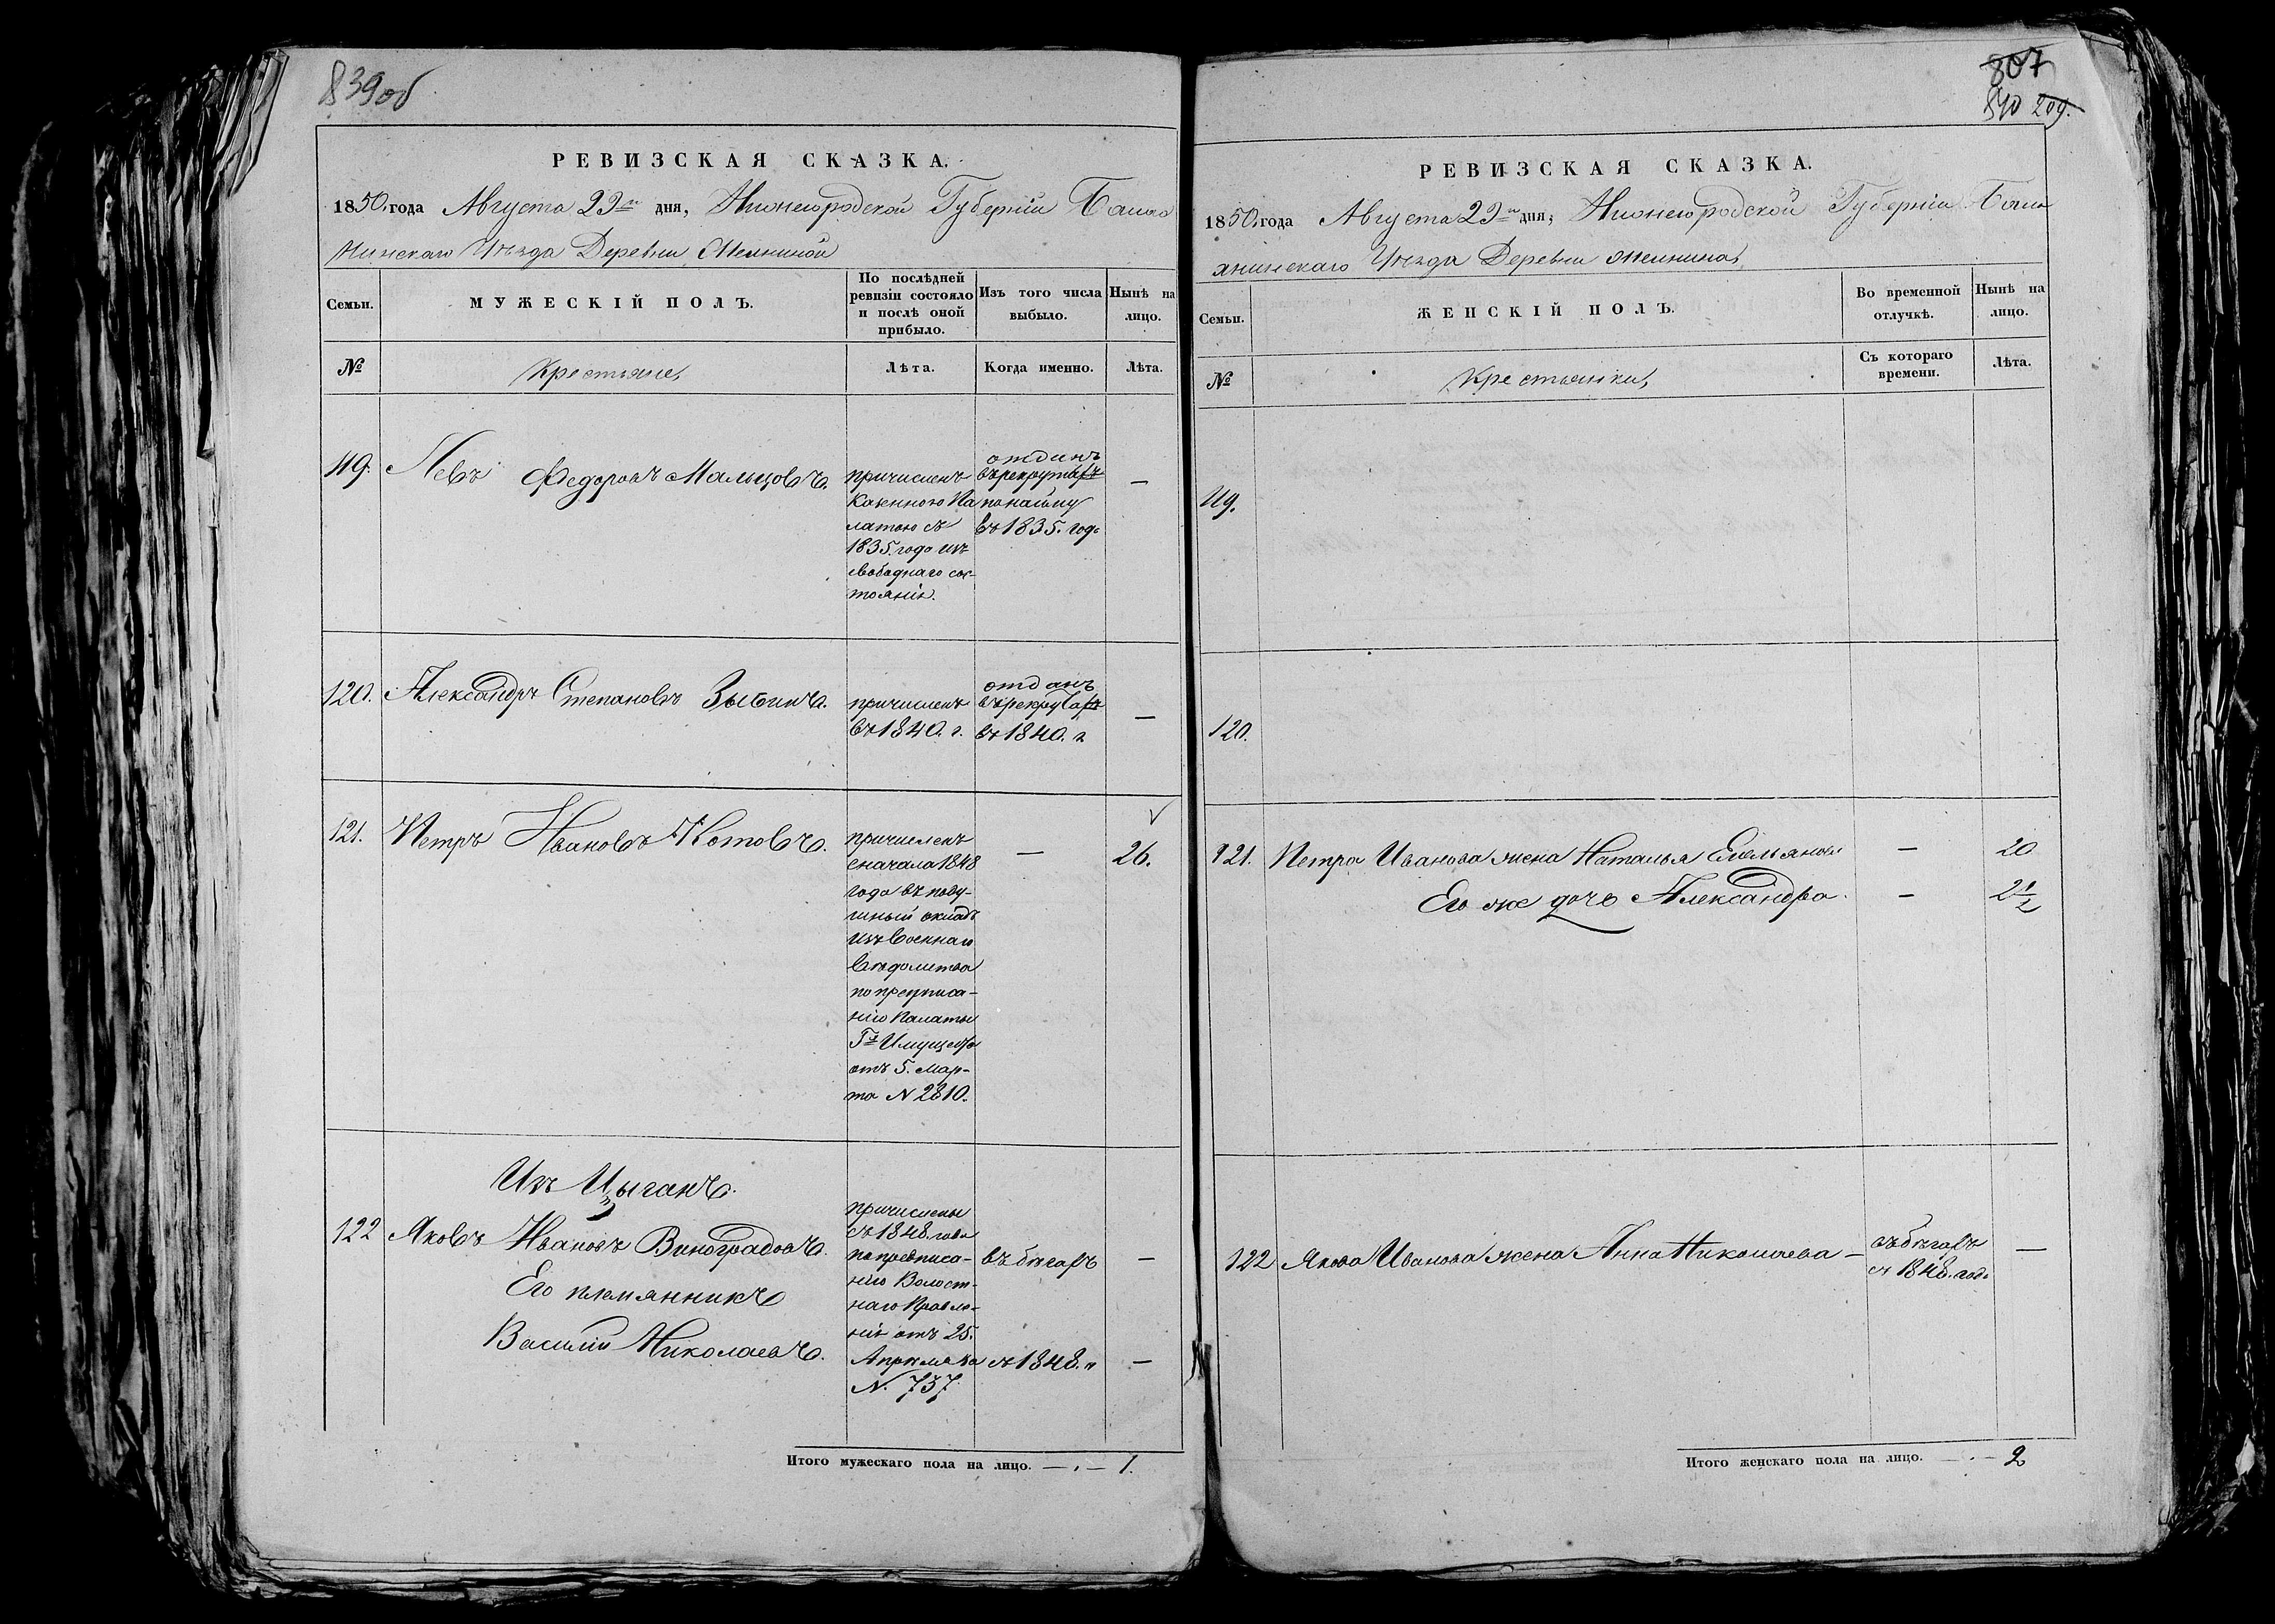 839об
РЕВИЗСКАЯ СКАЗКА.
1850. года Августа 29го дня, Нижегородской Губерніи Балах
нинскаго Уѣзда Деревни Мелниной
Семьи.
МУЖЕСКІЙ ПОЛЪ.
По послѣдней ревизіи состояло и послѣ оной прибыло.
Изъ того числа выбыло.
Нынѣ на лицо.
№
Крестьяне,
Лѣта.
Когда именно.
Лѣта.
119. Левъ Федоровъ Мальцовъ.
причисленъ
Казенною Па
латою съ
1835. года изъ
свободнаго сос-
тоянія.
отданъ
въ рекруты
по найму
въ 1835. годо
—
120. Александръ Степановъ Зыбинъ.
причисленъ
въ 1840. г.
отданъ
въ рекруты
въ 1840. г
—
121. Петръ Ивановъ Котовъ.
причисленъ
сначала 1848
года въ поду-
шный окладъ
изъ Военнаго
Вѣдомства
по предписа-
нію Палаты
Гх Имуществъ
отъ 5. Мар-
та N 2810.
—
26.
Изъ Цыганъ.
122 Яковъ Ивановъ Виноградовъ.
Его племянникъ
Василій Николаевъ.
причислены
съ 1848. года
по предписа-
нію Волост-
наго Правле-
нія отъ 25.
Апрѣля за
N. 737
въ бѣгахъ
съ 1848. г
—
—
Итого мужескаго пола на лицо. — . — 1.
807
840 209.
РЕВИЗСКАЯ СКАЗКА.
1850. года Августа 29го дня, Нижегородской Губерніи Балах
нинскаго Уѣзда Деревни Мелнина
Семьи.
ЖЕНСКІЙ ПОЛЪ.
Во временной отлучкѣ.
Нынѣ на лицо.
№
Крестьянки,
Съ котораго времени.
Лѣта.
119.
120.
121. Петра Иванова жена Наталья Емельянова — 20
Его же дочь Александра. — 2 1/2
122 Якова Иванова жена Анна Николаева —
въ бѣгахъ
съ 1848. года
—
Итого женскаго пола на лицо. — . — 2